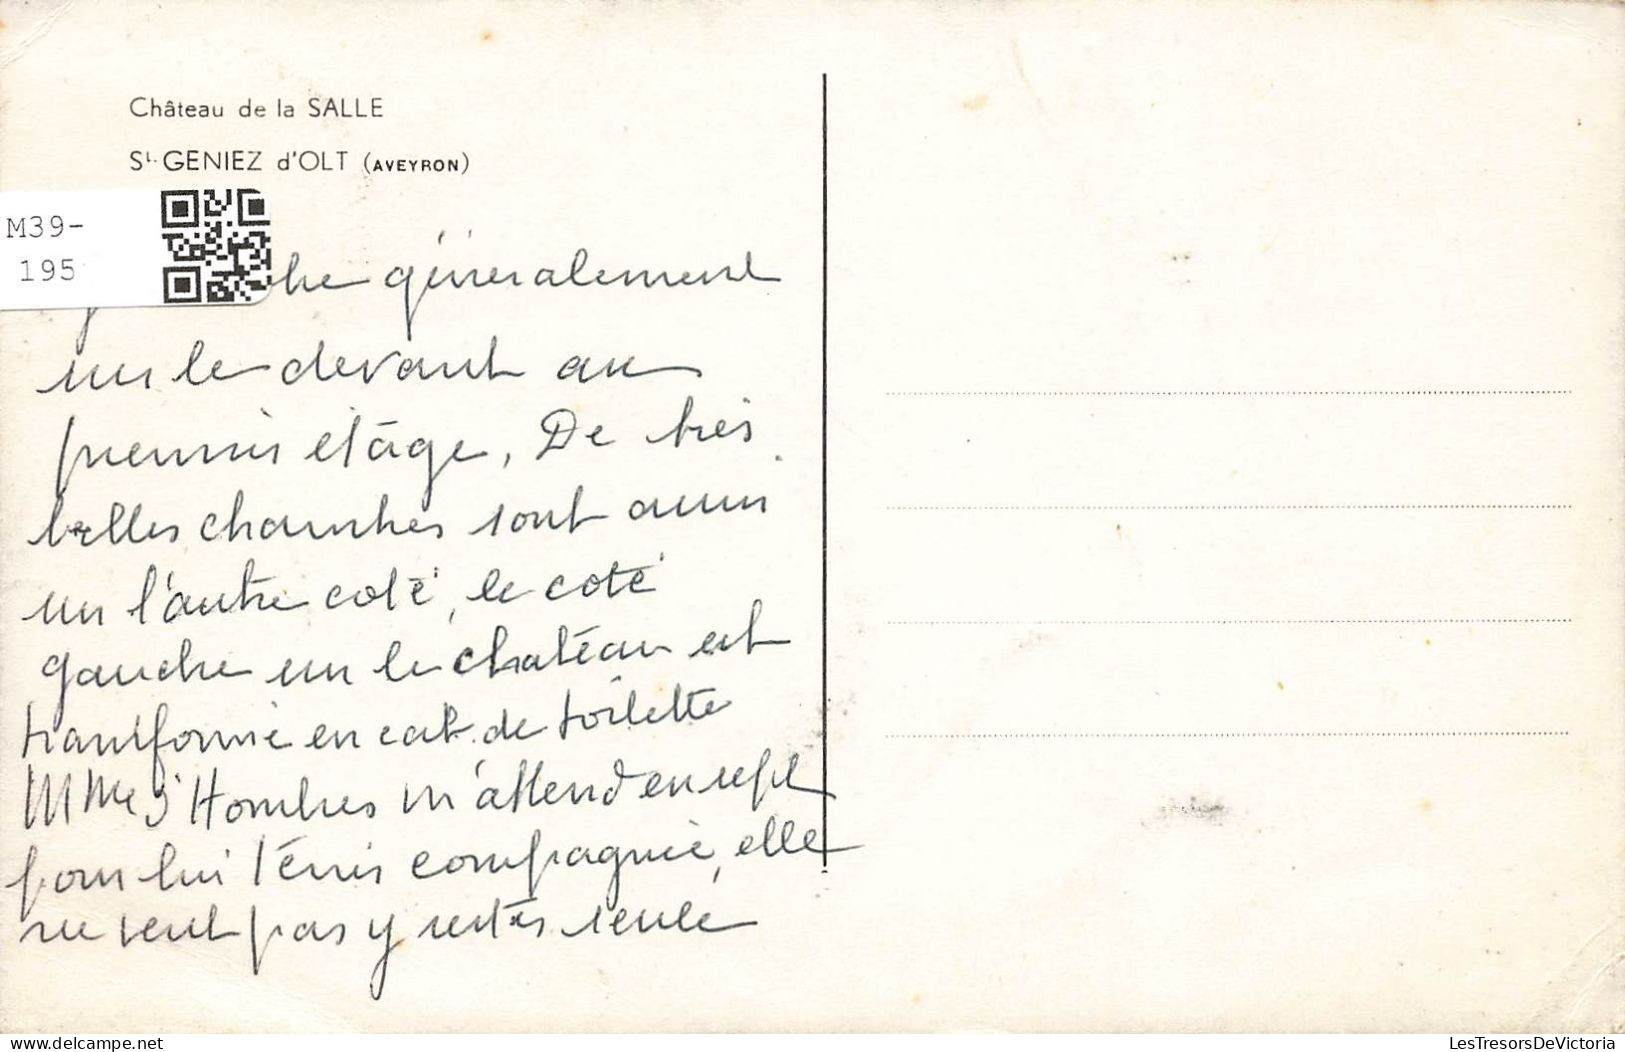 Château de la SALLE
St. GENIEZ d'OLT (AVEYRON)
M39-
195
généralement
sur le devant au
premier etage, De très
belles chambres sont aussi
sur l'autre coté, le coté
gauche sur le chateau est
transformé en cab. de toilette
MMe d'Hombres m'attend en sept
pour lui tenir compagnie, elle
ne veut pas y rester seule
LesTresorsDeVictoria
delcampe.net